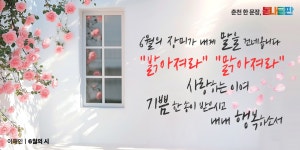 순천 한 문장,
6월의 장미가 내게 말을 건네옵니다
"밝아져라" "맑아져라"
사랑하는 이여
기쁨 한 송이 받으시고
내내 행복하소서
이해인 | 6월의 시